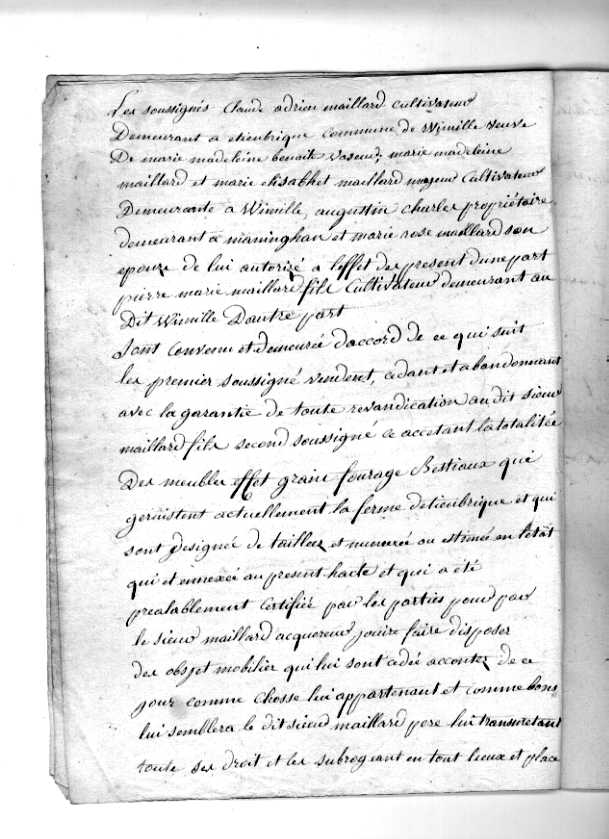 Les soussignés Claude adrien maillard cultivateur
Demeurant a etienbrique commune de Wimille veuve
De marie madeleine benoite vasseur, marie madeleine
maillard et marie elisabhet maillard majeur Cultivateur
Demeurante a Wimille, augustin charles propriétaire
demeurant a maninghan et marie rose maillard son
epouse de lui autorizé a l'effet des present dune part
pierre marie maillard fils Cultivateur demeurant au
Dit Wimille D'autre part
Sont Convenu et demeurée d'accord de ce qui suit
les premier soussigné vendent, cedant et abandonnant
avec la garantie de toute revandication au dit sieur
maillard fils second soussigné ce accetant la totalitée
Des meubles effet grain fourage Bestiaux qui
garnistent actuellement la ferme detienbrique et qui
sont designée de tailler et numerée ou estimée en l'état
qui et ennexée au present hacte et qui a été
prealablement Certifiée par les parties pour par
le sieur maillard acquereur jouire faire disposer
des obsjet mobilier qui lui sont cedée a compter de ce
jour comme Chosse lui appartenant et comme bons
lui semblera le dit sieur maillard pere lui transmetant
toute ses droit et les subrogeant en tout lieux et place